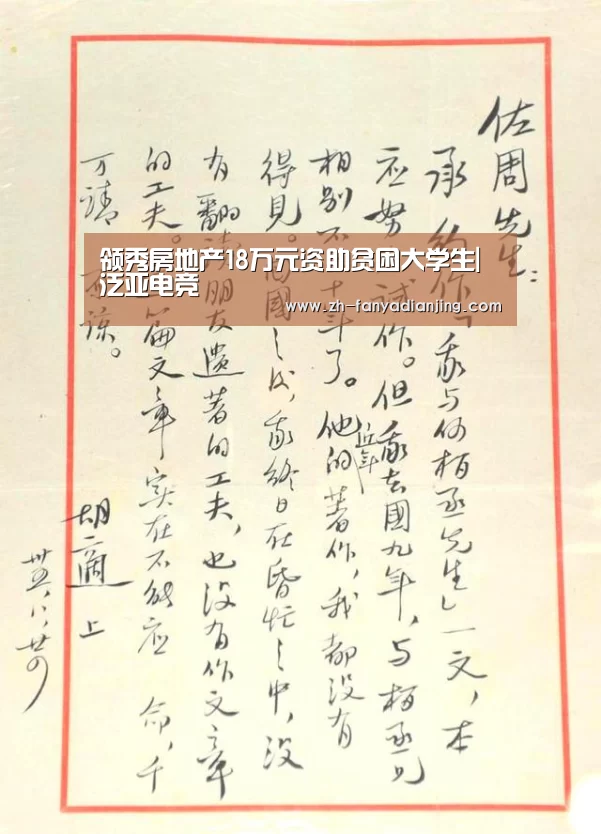 佐周先生：
承 约作「我与何柏丞先生」一文，本
应努试作。但我去國九年，与柏丞兄
相别不十年了。他近年的著作，我都没有
得見。國之後，我終日在昏忙之中，没
有翻读朋友遗著的工夫，也没有作文章
的工夫。篇文章实在不能应 命，千
万请 原谅。
胡适 上
卅五、八、廿四
领秀房地产18万元资助贫困大学生|
泛亚电竞
www.zh-fanyadianjing.com